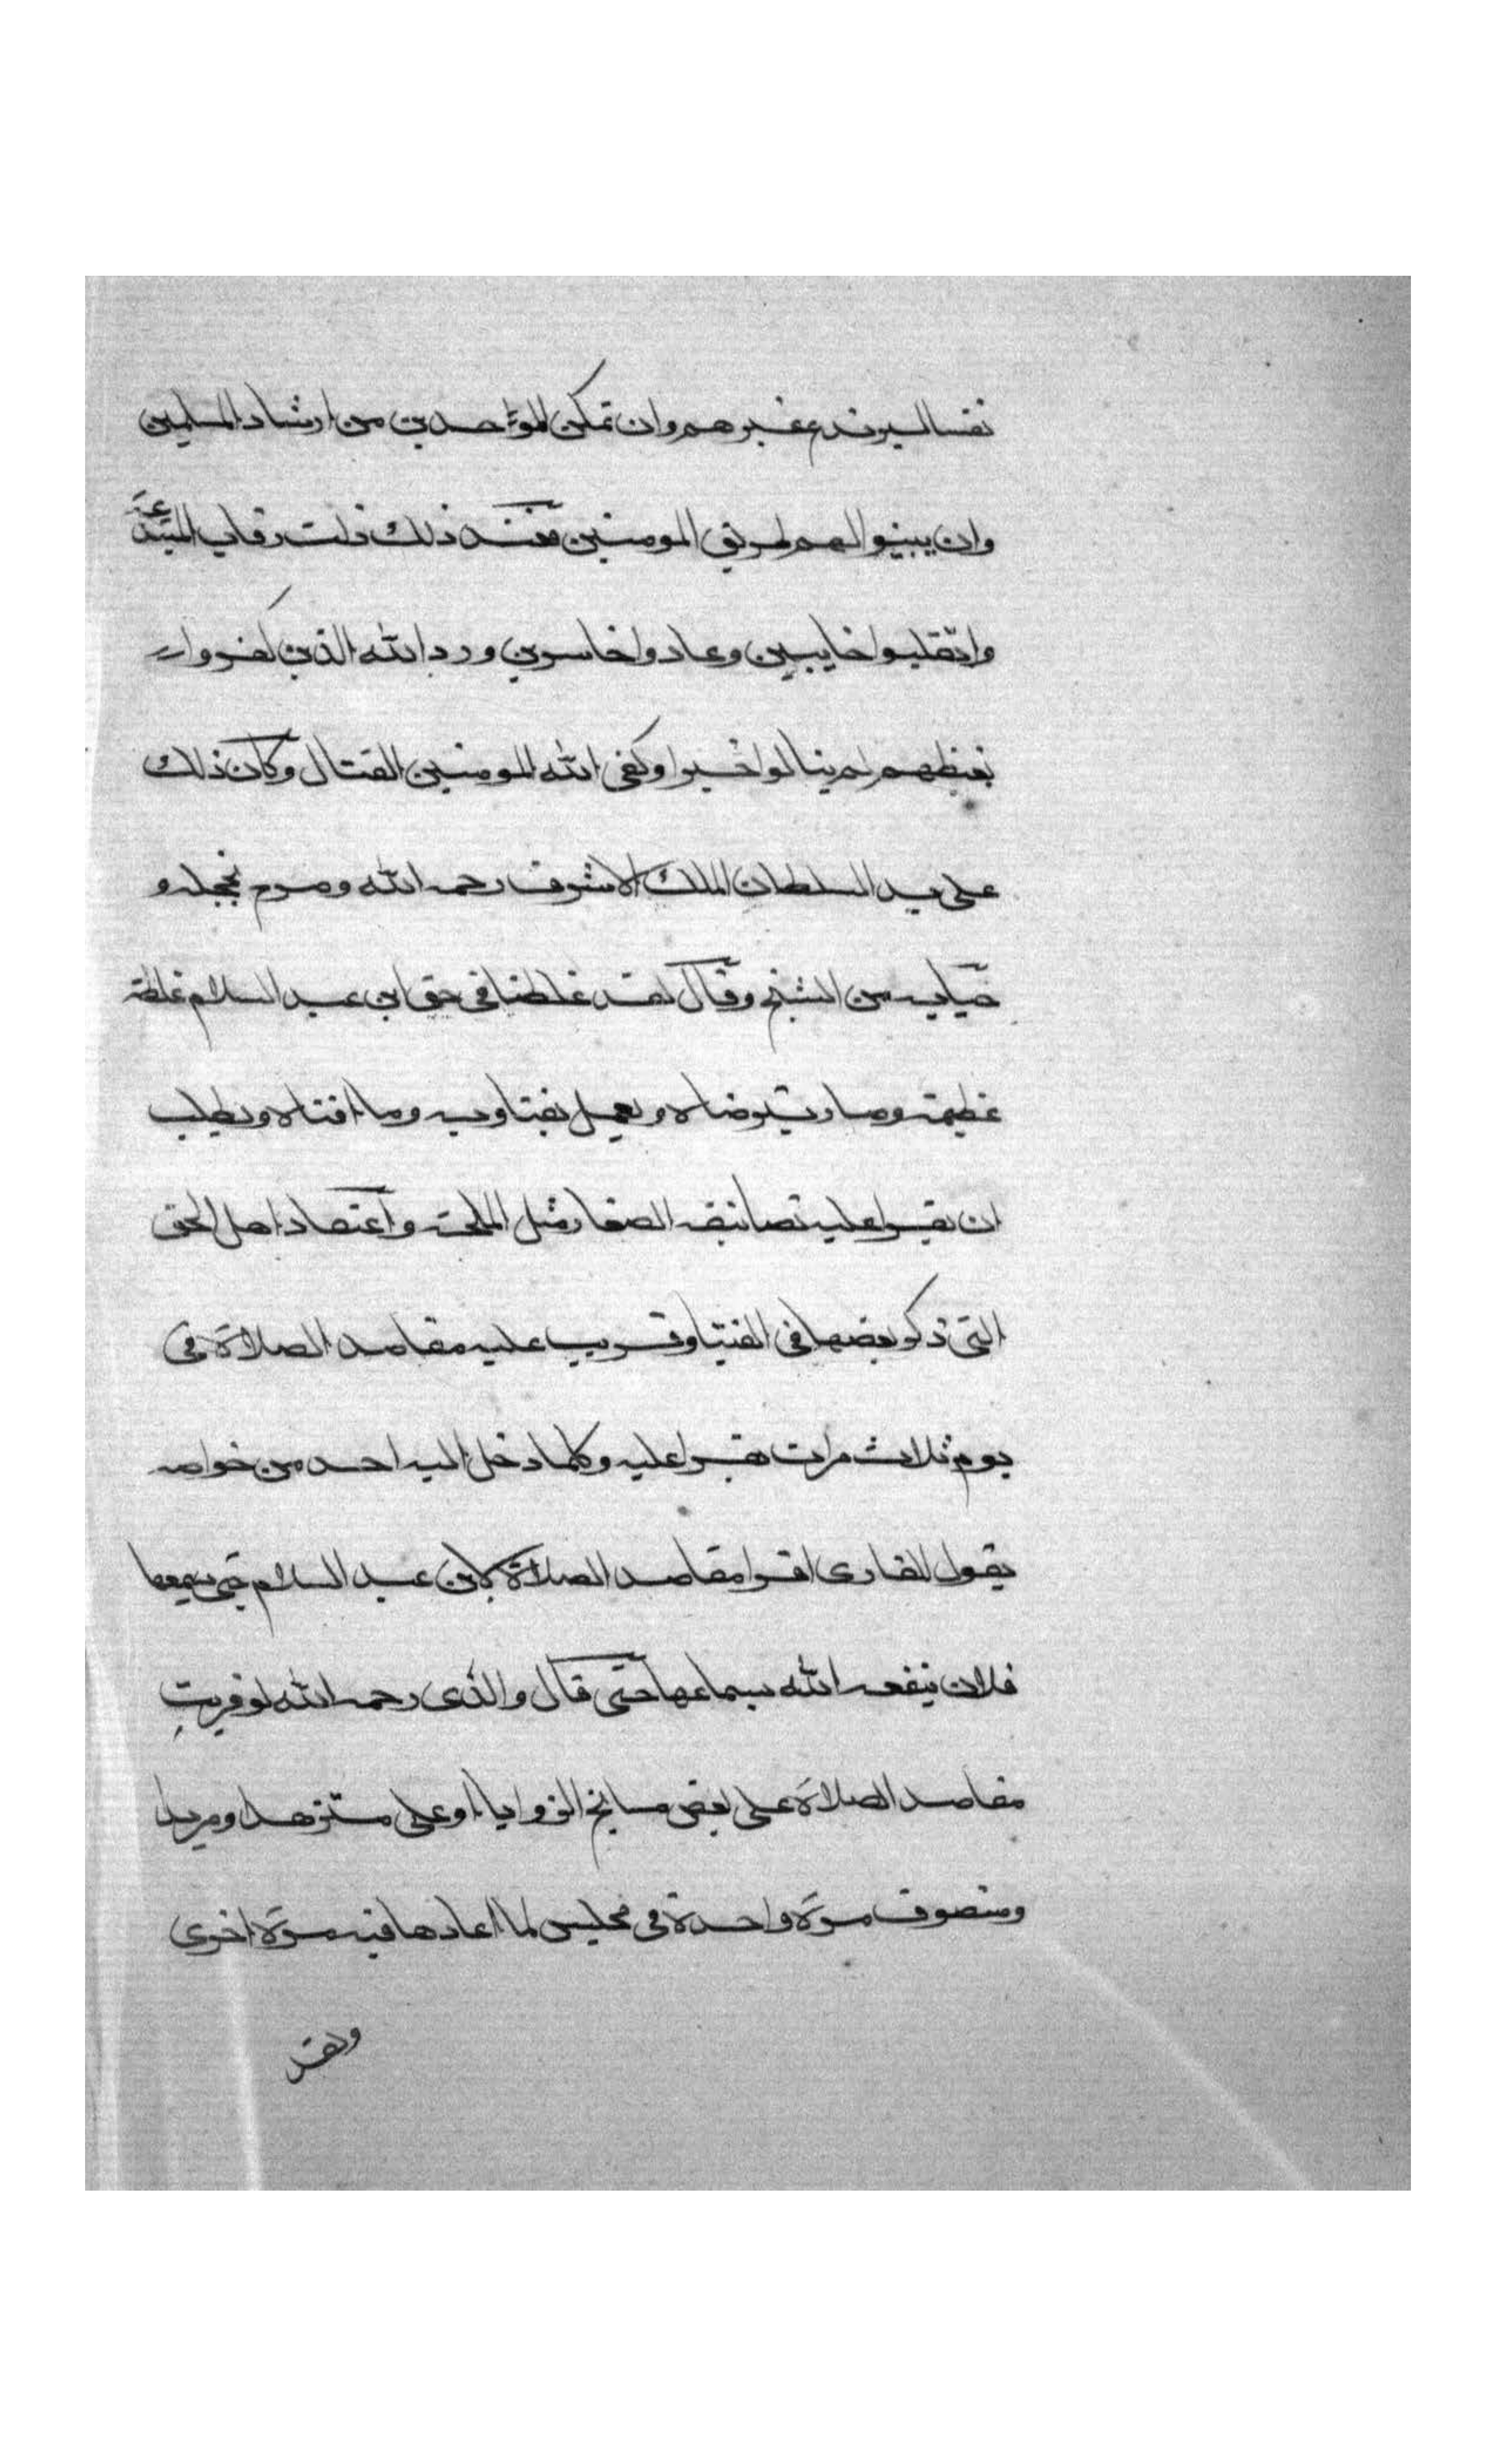 نفسا ليرتدع غيرهم وان تمكن الموحدين من ارشاد المسلمين
وان يبينوا لهم طريق المومنين فعند ذلك ذلت رقاب المبتدعة
وانقلبوا خايبين وعادوا خاسرين ورد الله الذين كفروا
بغيظهم لم ينالوا خيرا وكفى الله المومنين القتال وكان ذلك
على يد السلطان الملك الاشرف رحمه الله وصرح بخجله و
حيايه من الشيخ وقال لقد غلطنا في حق ابن عبد السلام غلطة
عظيمة وصار يترضاه ويعمل بفتاويه وما افتاه ويطلب
ان يقرا عليه تصانيفه الصغار مثل الملحة واعتقاد اهل الحق
التي ذكر بعضها في الفتيا وقريت عليه مقاصد الصلاة في
يوم ثلاث مرات تقرا عليه وكلما دخل اليه احد من خواصه
يقول للقارى اقرا مقاصد الصلاة لابن عبد السلام حتى يسمعها
فلان ينفعه الله بسماعها حتى قال والدى رحمه الله لو قريت
مقاصد الصلاة على بعض مسايخ الزوايا او على متزهد او مريد
ومتصوف مرة واحدة في مجلس لما اعادها فيه مرة اخرى
ولقد